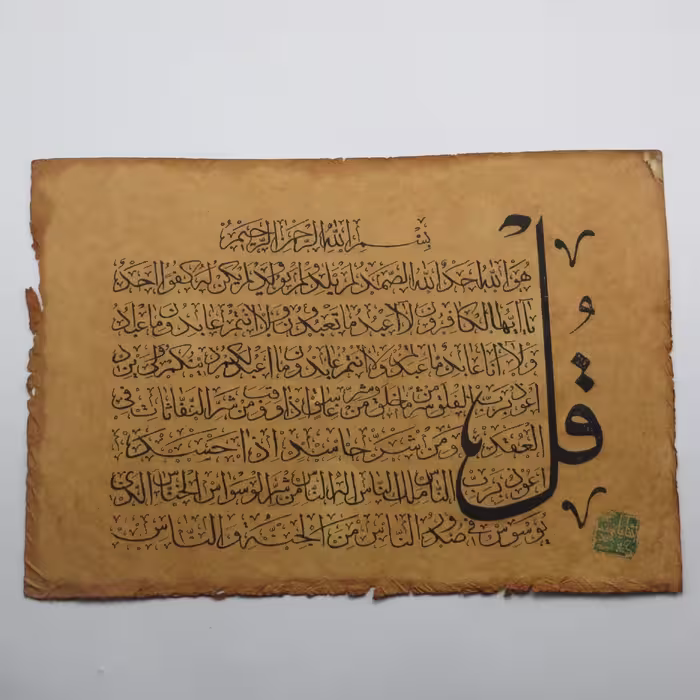 بسم الله الرحمن الرحيم
قل
هو الله احد الله الصمد لم يلد ولم يولد ولم يكن له كفوا احد
يا ايها الكافرون لا اعبد ما تعبدون ولا انتم عابدون ما اعبد
ولا انا عابد ما عبدتم ولا انتم عابدون ما اعبد لكم دينكم ولي دين
اعوذ برب الفلق من شر ما خلق ومن شر غاسق اذا وقب ومن شر النفاثات في
العقد ومن شر حاسد اذا حسد
اعوذ برب الناس ملك الناس اله الناس من شر الوسواس الخناس الذي
يوسوس في صدور الناس من الجنة والناس